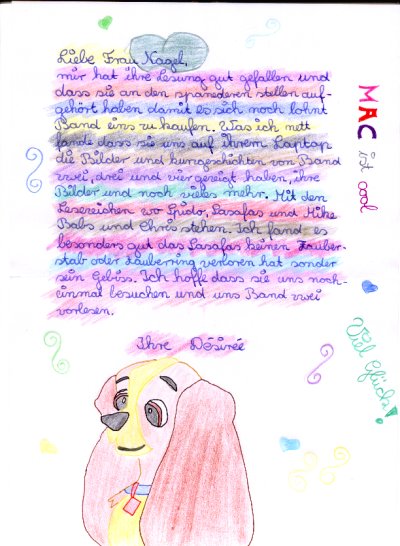 Liebe Frau Nagel,
mir hat ihre Lesung gut gefallen und
dass sie an den spanederen stellen auf-
gehört haben damit es sich noch lohnt
Band eins zu kaufen. Was ich nett
fande dass sie uns auf ihrem Laptap
die Bilder und kurzgeschichten von Band
zwei, drei und vier gezeigt haben, ihre
Bilder und noch vieles mehr. Mit den
Lesezeichen wo Guido, Lasafas und Mike
Babs und Chris stehen. Ich fand es
besonders gut das Lasafas keinen Zauber-
stab oder Zauberring verloren hat sonder
sein Gebiss. Ich hoffe dass sie uns noch-
einmal besuchen und uns Band zwei
vorlesen.
Ihre Désirée
MAC ist cool
Viel Glück!